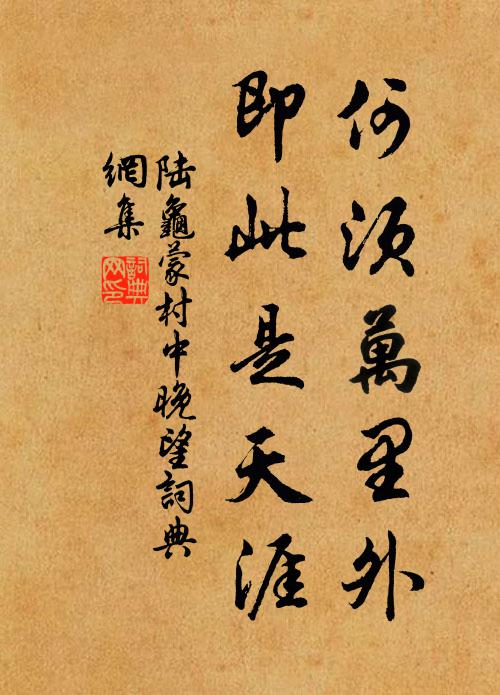 何須萬里外
即此是天涯
陸龜蒙村中晚望詞典
網集
詞典
网印